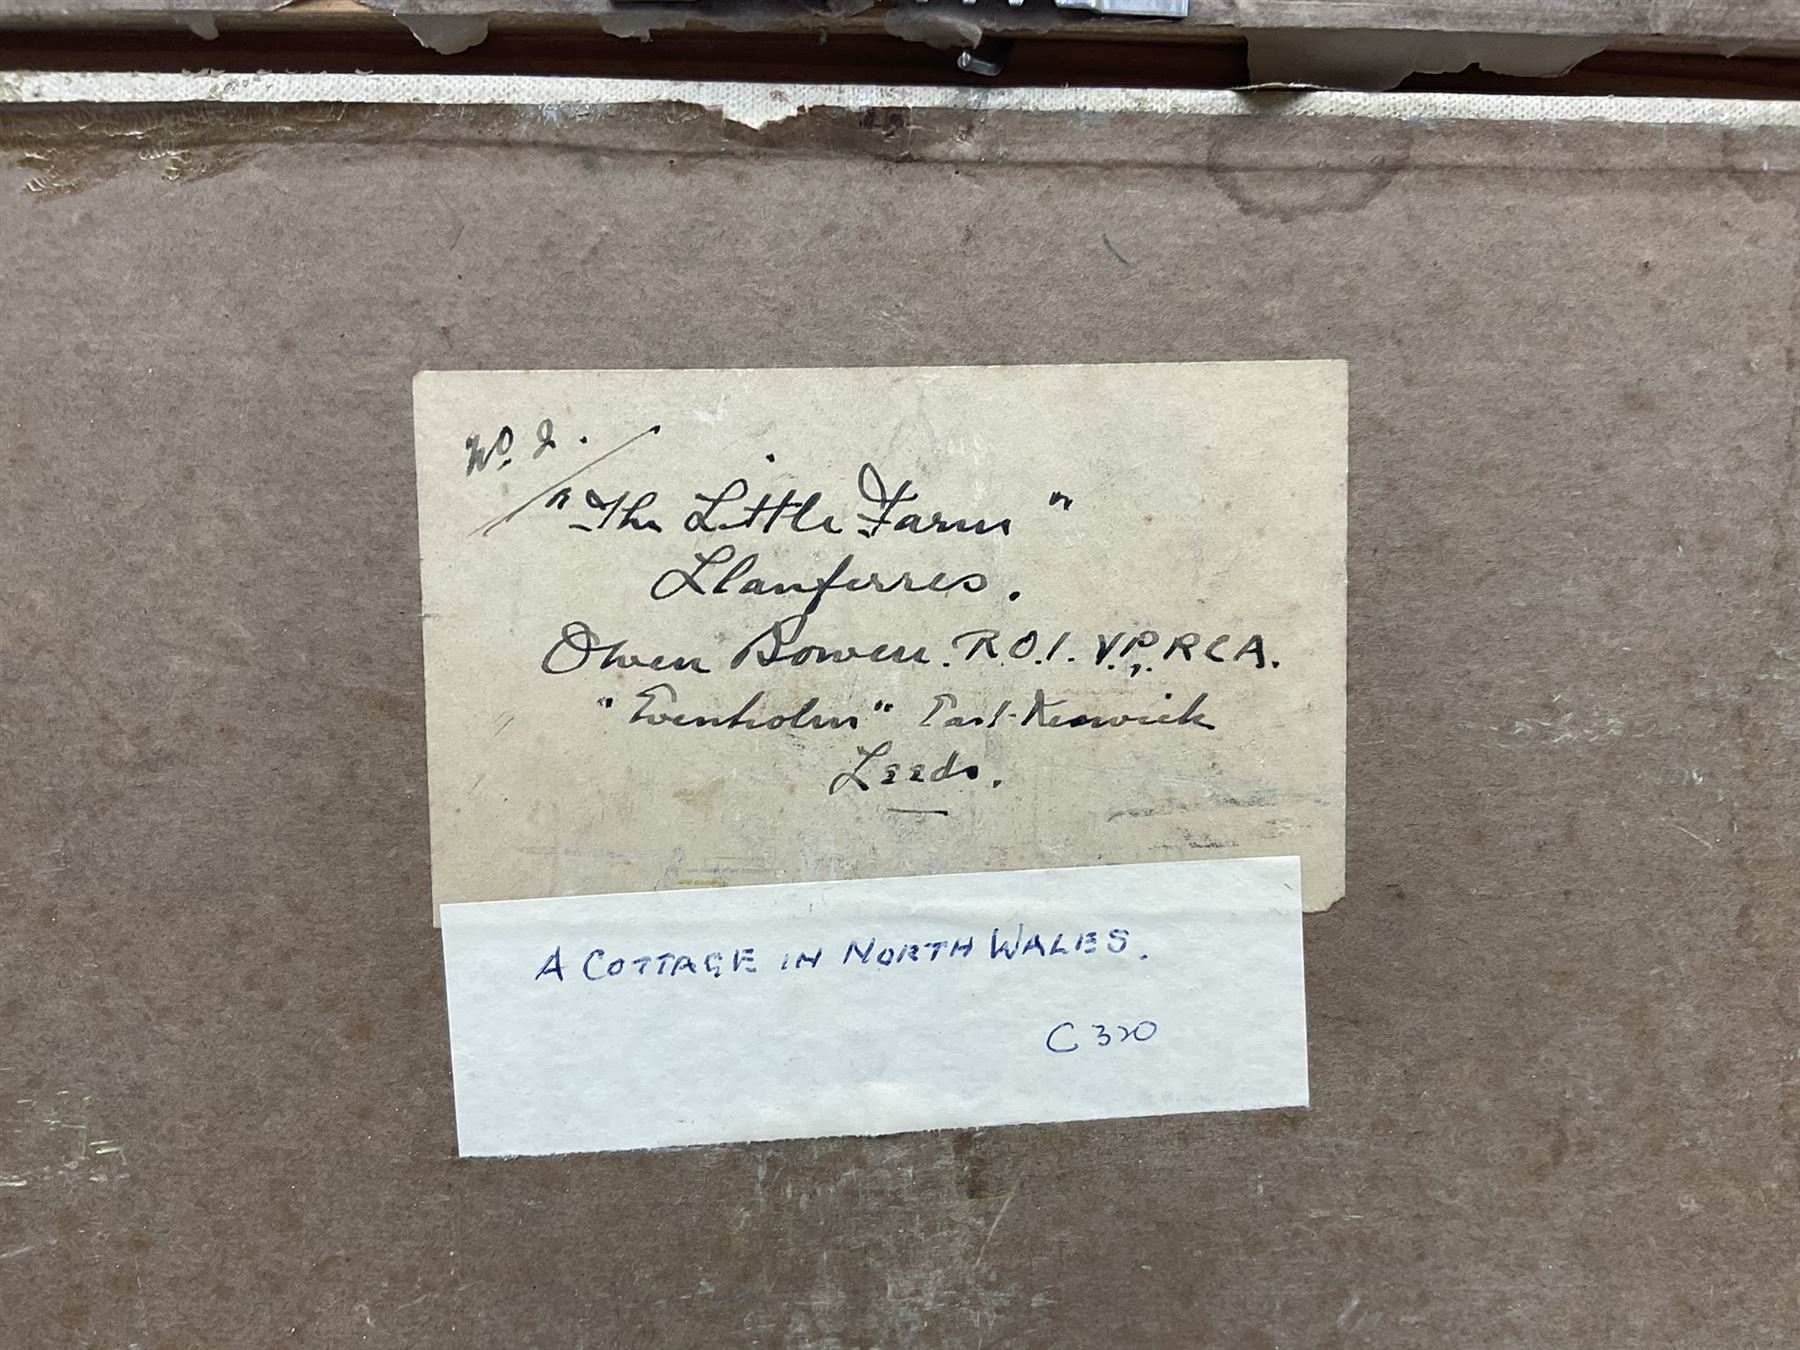 No. 2.
"The Little Farm"
Llanferres.
Owen Bowen. R.O.I. V.P. R C A.
"Evenholm" East Keswick
Leeds.
A COTTAGE IN NORTH WALES.
C 320